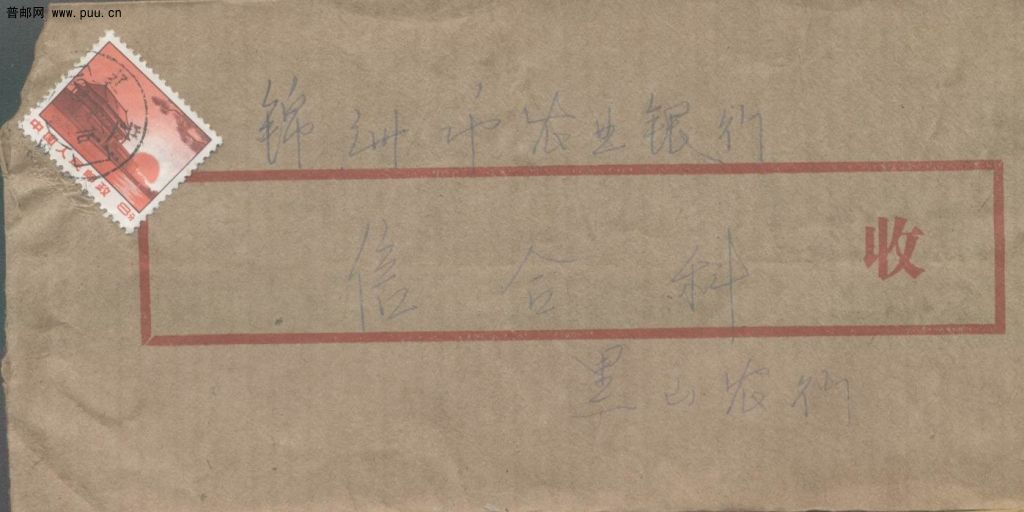 普邮网 www.puu.cn
中国人民邮政 8分
锦州市农业银行
信合科
收
黑山农行